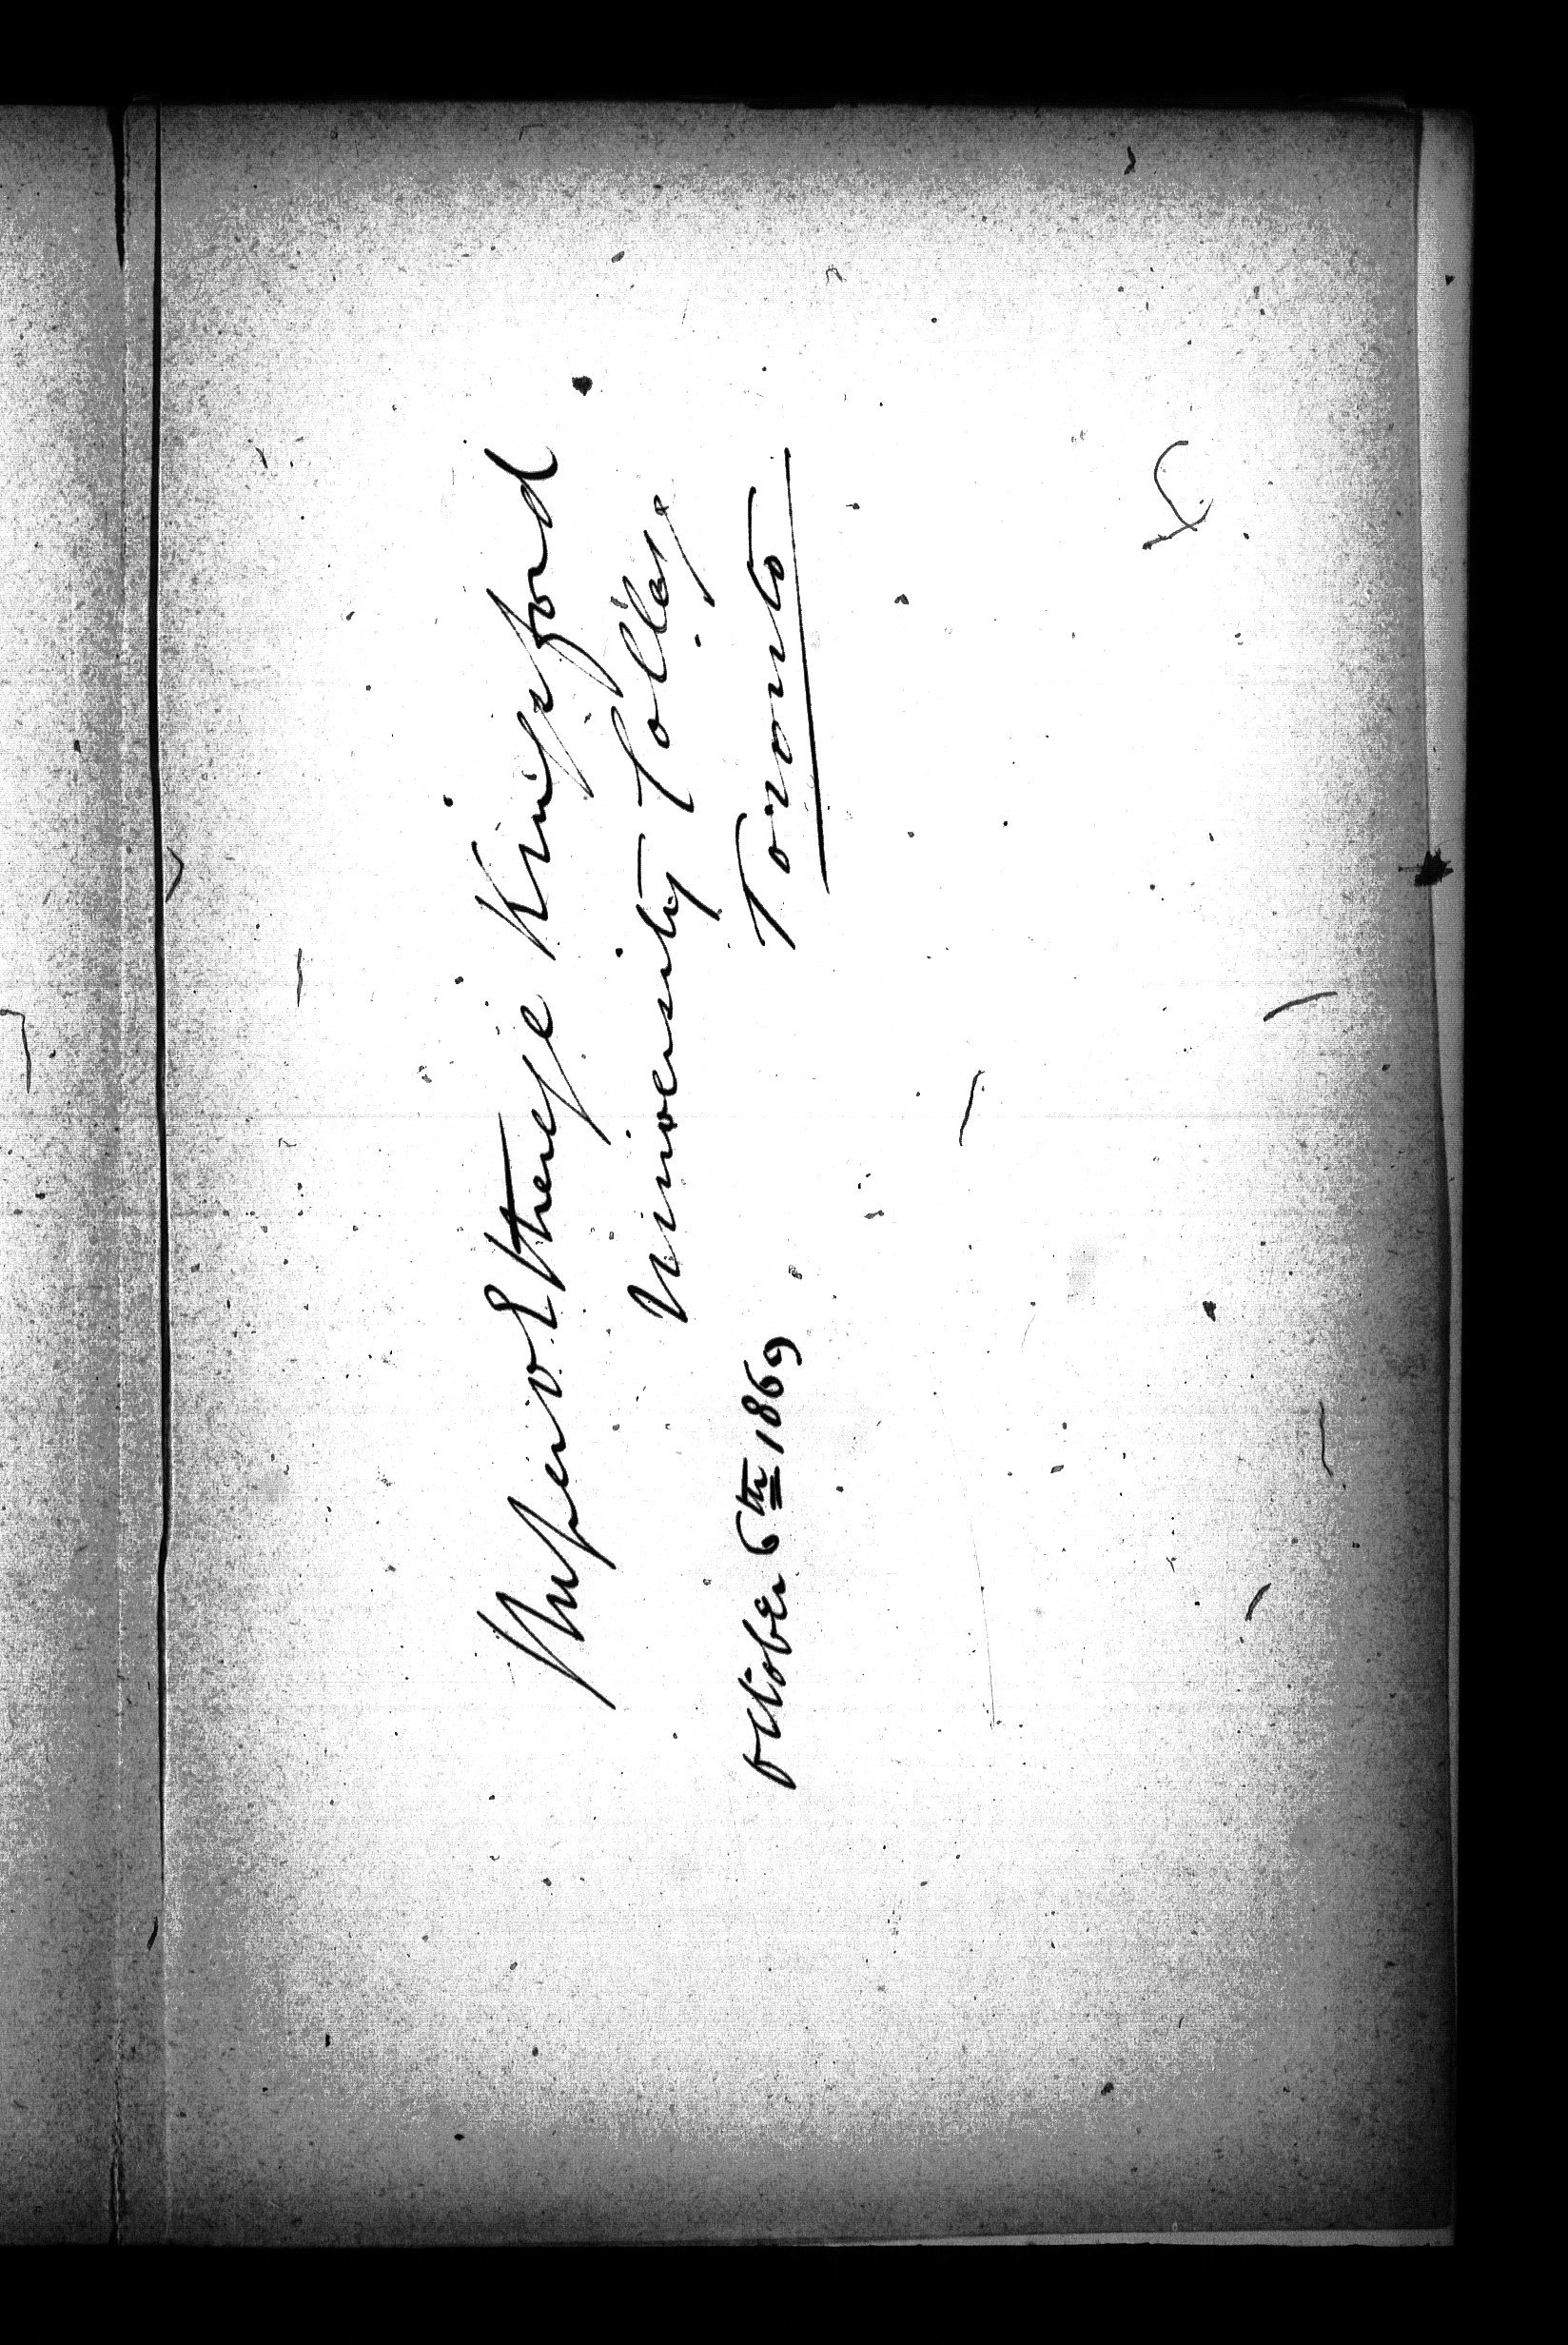 Rupert Etherege Kingsford
University College
October 6th 1869 Toronto